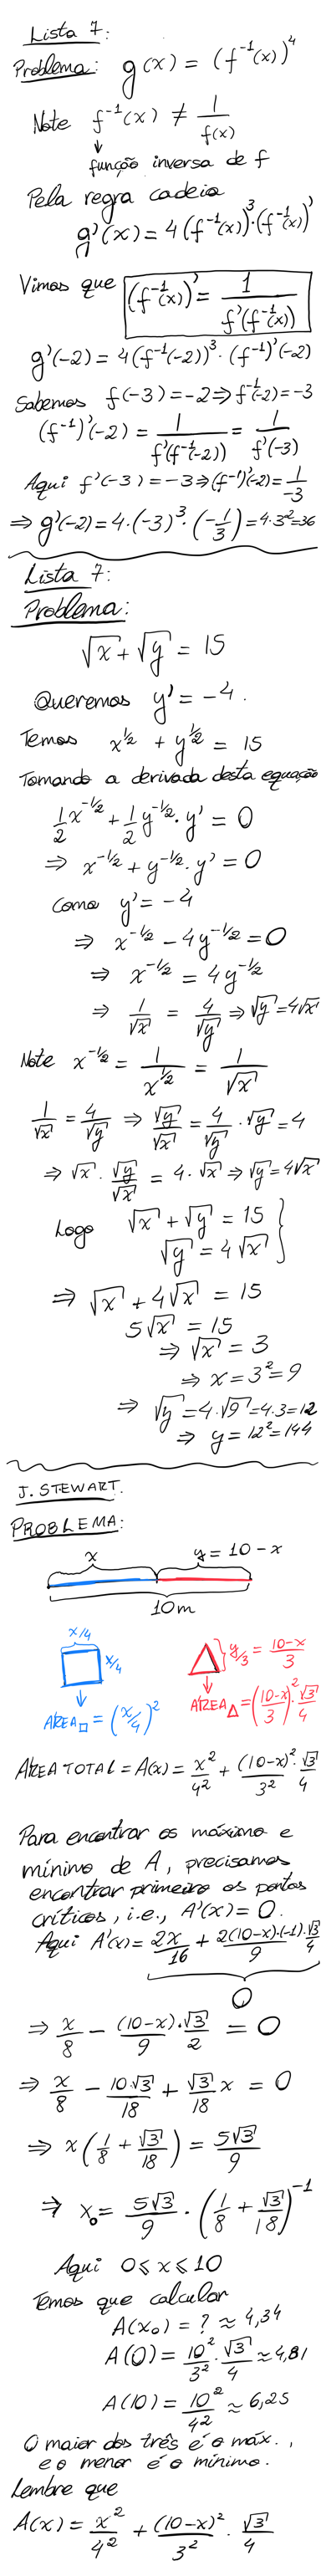 Lista 7:
Problema: g(x) = (f⁻¹(x))⁴
Note f⁻¹(x) ≠ 1/f(x)
↓
função inversa de f
Pela regra cadeia
g'(x) = 4(f⁻¹(x))³·(f⁻¹(x))'
Vimos que (f⁻¹(x))' = 1/f'(f⁻¹(x))
g'(-2) = 4(f⁻¹(-2))³·(f⁻¹)'(-2)
Sabemos f(-3) = -2 ⇒ f⁻¹(-2) = -3
(f⁻¹)'(-2) = 1/f'(f⁻¹(-2)) = 1/f'(-3)
Aqui f'(-3) = -3 ⇒ (f⁻¹)'(-2) = 1/-3
⇒ g'(-2) = 4·(-3)³·(-1/3) = 4·3² = 36
Lista 7:
Problema:
√x + √y = 15
Queremos y' = -4.
Temos x^1/2 + y^1/2 = 15
Tomando a derivada desta equação
1/2 x^-1/2 + 1/2 y^-1/2·y' = 0
⇒ x^-1/2 + y^-1/2·y' = 0
Como y' = -4
⇒ x^-1/2 - 4y^-1/2 = 0
⇒ x^-1/2 = 4y^-1/2
⇒ 1/√x = 4/√y ⇒ √y = 4√x
Note x^-1/2 = 1/x^1/2 = 1/√x
1/√x = 4/√y ⇒ √y/√x = 4/√y·√y = 4
⇒ √x·√y/√x = 4·√x ⇒ √y = 4√x
Logo √x + √y = 15
√y = 4√x
⇒ √x + 4√x = 15
5√x = 15
⇒ √x = 3
⇒ x = 3² = 9
⇒ √y = 4·√9 = 4·3 = 12
⇒ y = 12² = 144
J. STEWART.
PROBLEMA:
x y = 10 - x
10m
x/4
x/4 y/3 = (10-x)/3
ÁREA□ = (x/4)² ÁREA△ = ((10-x)/3)²·√3/4
ÁREA TOTAL = A(x) = x²/4² + (10-x)²/3²·√3/4
Para encontrar os máximo e
mínimo de A, precisamos
encontrar primeiro os pontos
críticos, i.e., A'(x) = 0.
Aqui A'(x) = 2x/16 + 2(10-x)·(-1)/9·√3/4
0
⇒ x/8 - (10-x)/9·√3/2 = 0
⇒ x/8 - 10√3/18 + √3/18 x = 0
⇒ x(1/8 + √3/18) = 5√3/9
⇒ x₀ = 5√3/9·(1/8 + √3/18)⁻¹
Aqui 0 ≤ x ≤ 10
Temos que calcular
A(x₀) = ? ≈ 4,34
A(0) = 10²/3²·√3/4 ≈ 4,81
A(10) = 10²/4² ≈ 6,25
O maior dos três é o máx.,
e o menor é o mínimo.
Lembre que
A(x) = x²/4² + (10-x)²/3²·√3/4